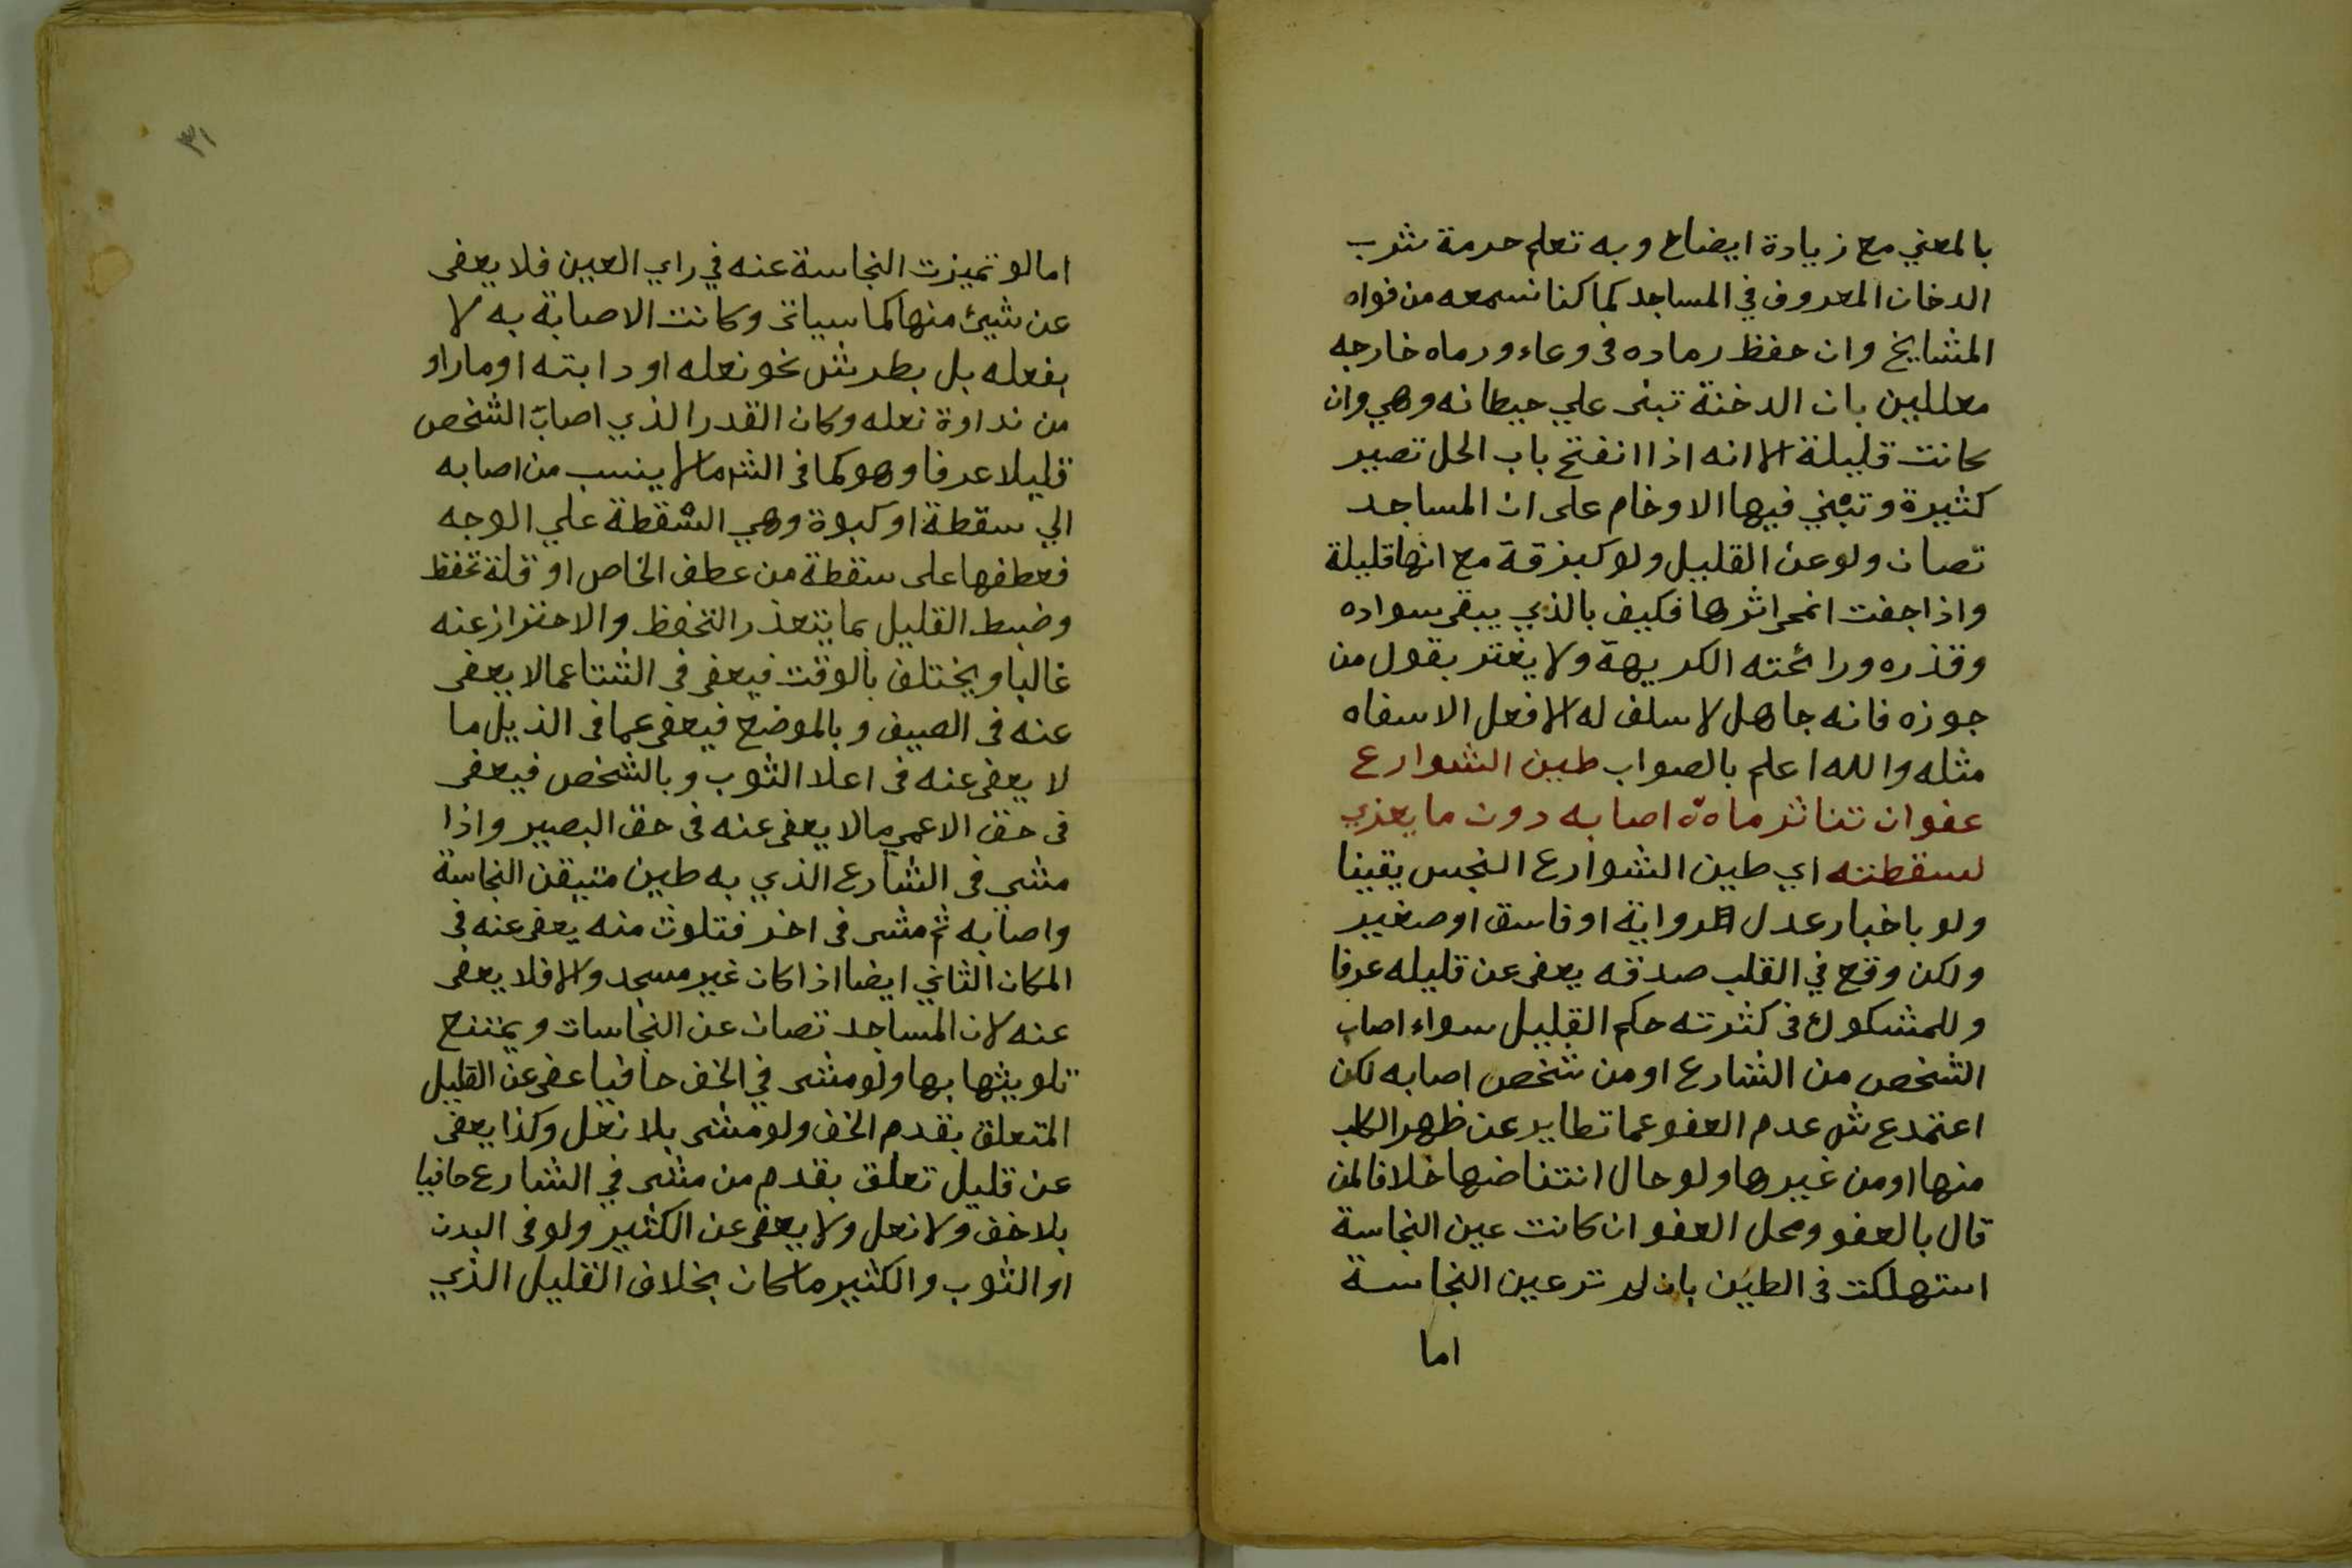 بالمعني مع زيادة ايضاح وبه تعلم حرمة شرب
الدخان المعروف في المساجد كما كنا نسمعه من فواه
المشايخ وان حفظ رماده فى وعاء ورماه خارجه
معللين بان الدخنة تبنى علي حيطانه وهي وان
كانت قليلة الا انه اذا انفتح باب الحل تصير
كثيرة وتبني فيها الاوخام على ان المساجد
تصان ولو عن القليل ولو كبزقة مع انها قليلة
واذا جفت انمحى اثرها فكيف بالذي يبقى سواده
وقذره ورائحته الكريهة ولا يغتر بقول من
جوزه فانه جاهل لا سلف له الا فعل الاسفاه
مثله والله اعلم بالصواب طين الشوارع
عفوان تناثر ماءه اصابه دون ما يعزي
لسقطته اي طين الشوارع النجس يقينا
ولو باخبار عدل الرواية او فاسق او صغير
ولكن وقع في القلب صدقه يعفى عن قليله عرفا
وللمشكوك فى كثرته حكم القليل سواء اصاب
الشخص من الشارع او من شخص اصابه لكن
اعتمد ع ش عدم العفو عما تطاير عن ظهر الكلب
منها او من غيرها ولو حال انتفاضها خلافا لمن
قال بالعفو ومحل العفو ان كانت عين النجاسة
استهلكت فى الطين بان لم تر عين النجاسة
اما
٣١
اما لو تميزت النجاسة عنه في راي العين فلا يعفى
عن شيئ منها كما سياتى وكانت الاصابة به لا
بفعله بل بطرش نحو نعله او دابته او مار او
من نداوة نعله وكان القدر الذي اصاب الشخص
قليلا عرفا وهو كما فى الشر ما لا ينسب من اصابه
الي سقطة او كبوة وهي السقطة علي الوجه
فعطفها على سقطة من عطف الخاص او قلة تحفظ
وضبط القليل بما يتعذر التحفظ والاحتراز عنه
غالبا ويختلف بالوقت فيعفى فى الشتا عما لا يعفى
عنه فى الصيف وبالموضع فيعفى عما فى الذيل ما
لا يعفى عنه فى اعلا الثوب وبالشخص فيعفى
فى حق الاعمي ما لا يعفى عنه فى حق البصير واذا
مشى فى الشارع الذي به طين متيقن النجاسة
واصابه ثم مشى فى اخر فتلوث منه يعفى عنه فى
المكان الثاني ايضا اذا كان غير مسجد والا فلا يعفى
عنه لان المساجد تصان عن النجاسات ويمتنع
تلويثها بها ولو مشى في الخف حافيا عفى عن القليل
المتعلق بقدم الخف ولو مشى بلا نعل وكذا يعفى
عن قليل تعلق بقدم من مشى في الشارع حافيا
بلا خف ولا نعل ولا يعفى عن الكثير ولو فى البدن
او الثوب والكثير ما كان بخلاف القليل الذي